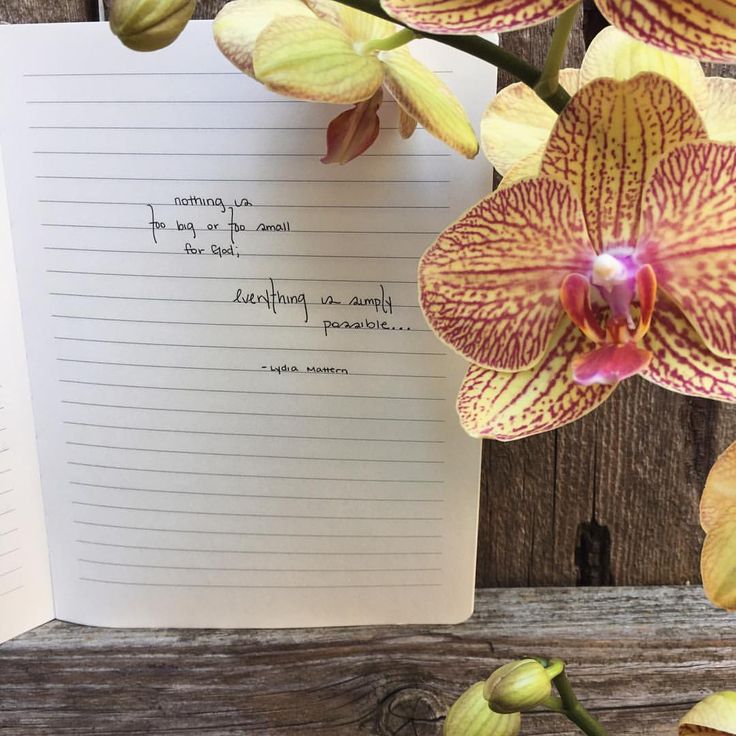 nothing is
too big or too small
for God;
everything is simply
possible...
- Lydia Mattern